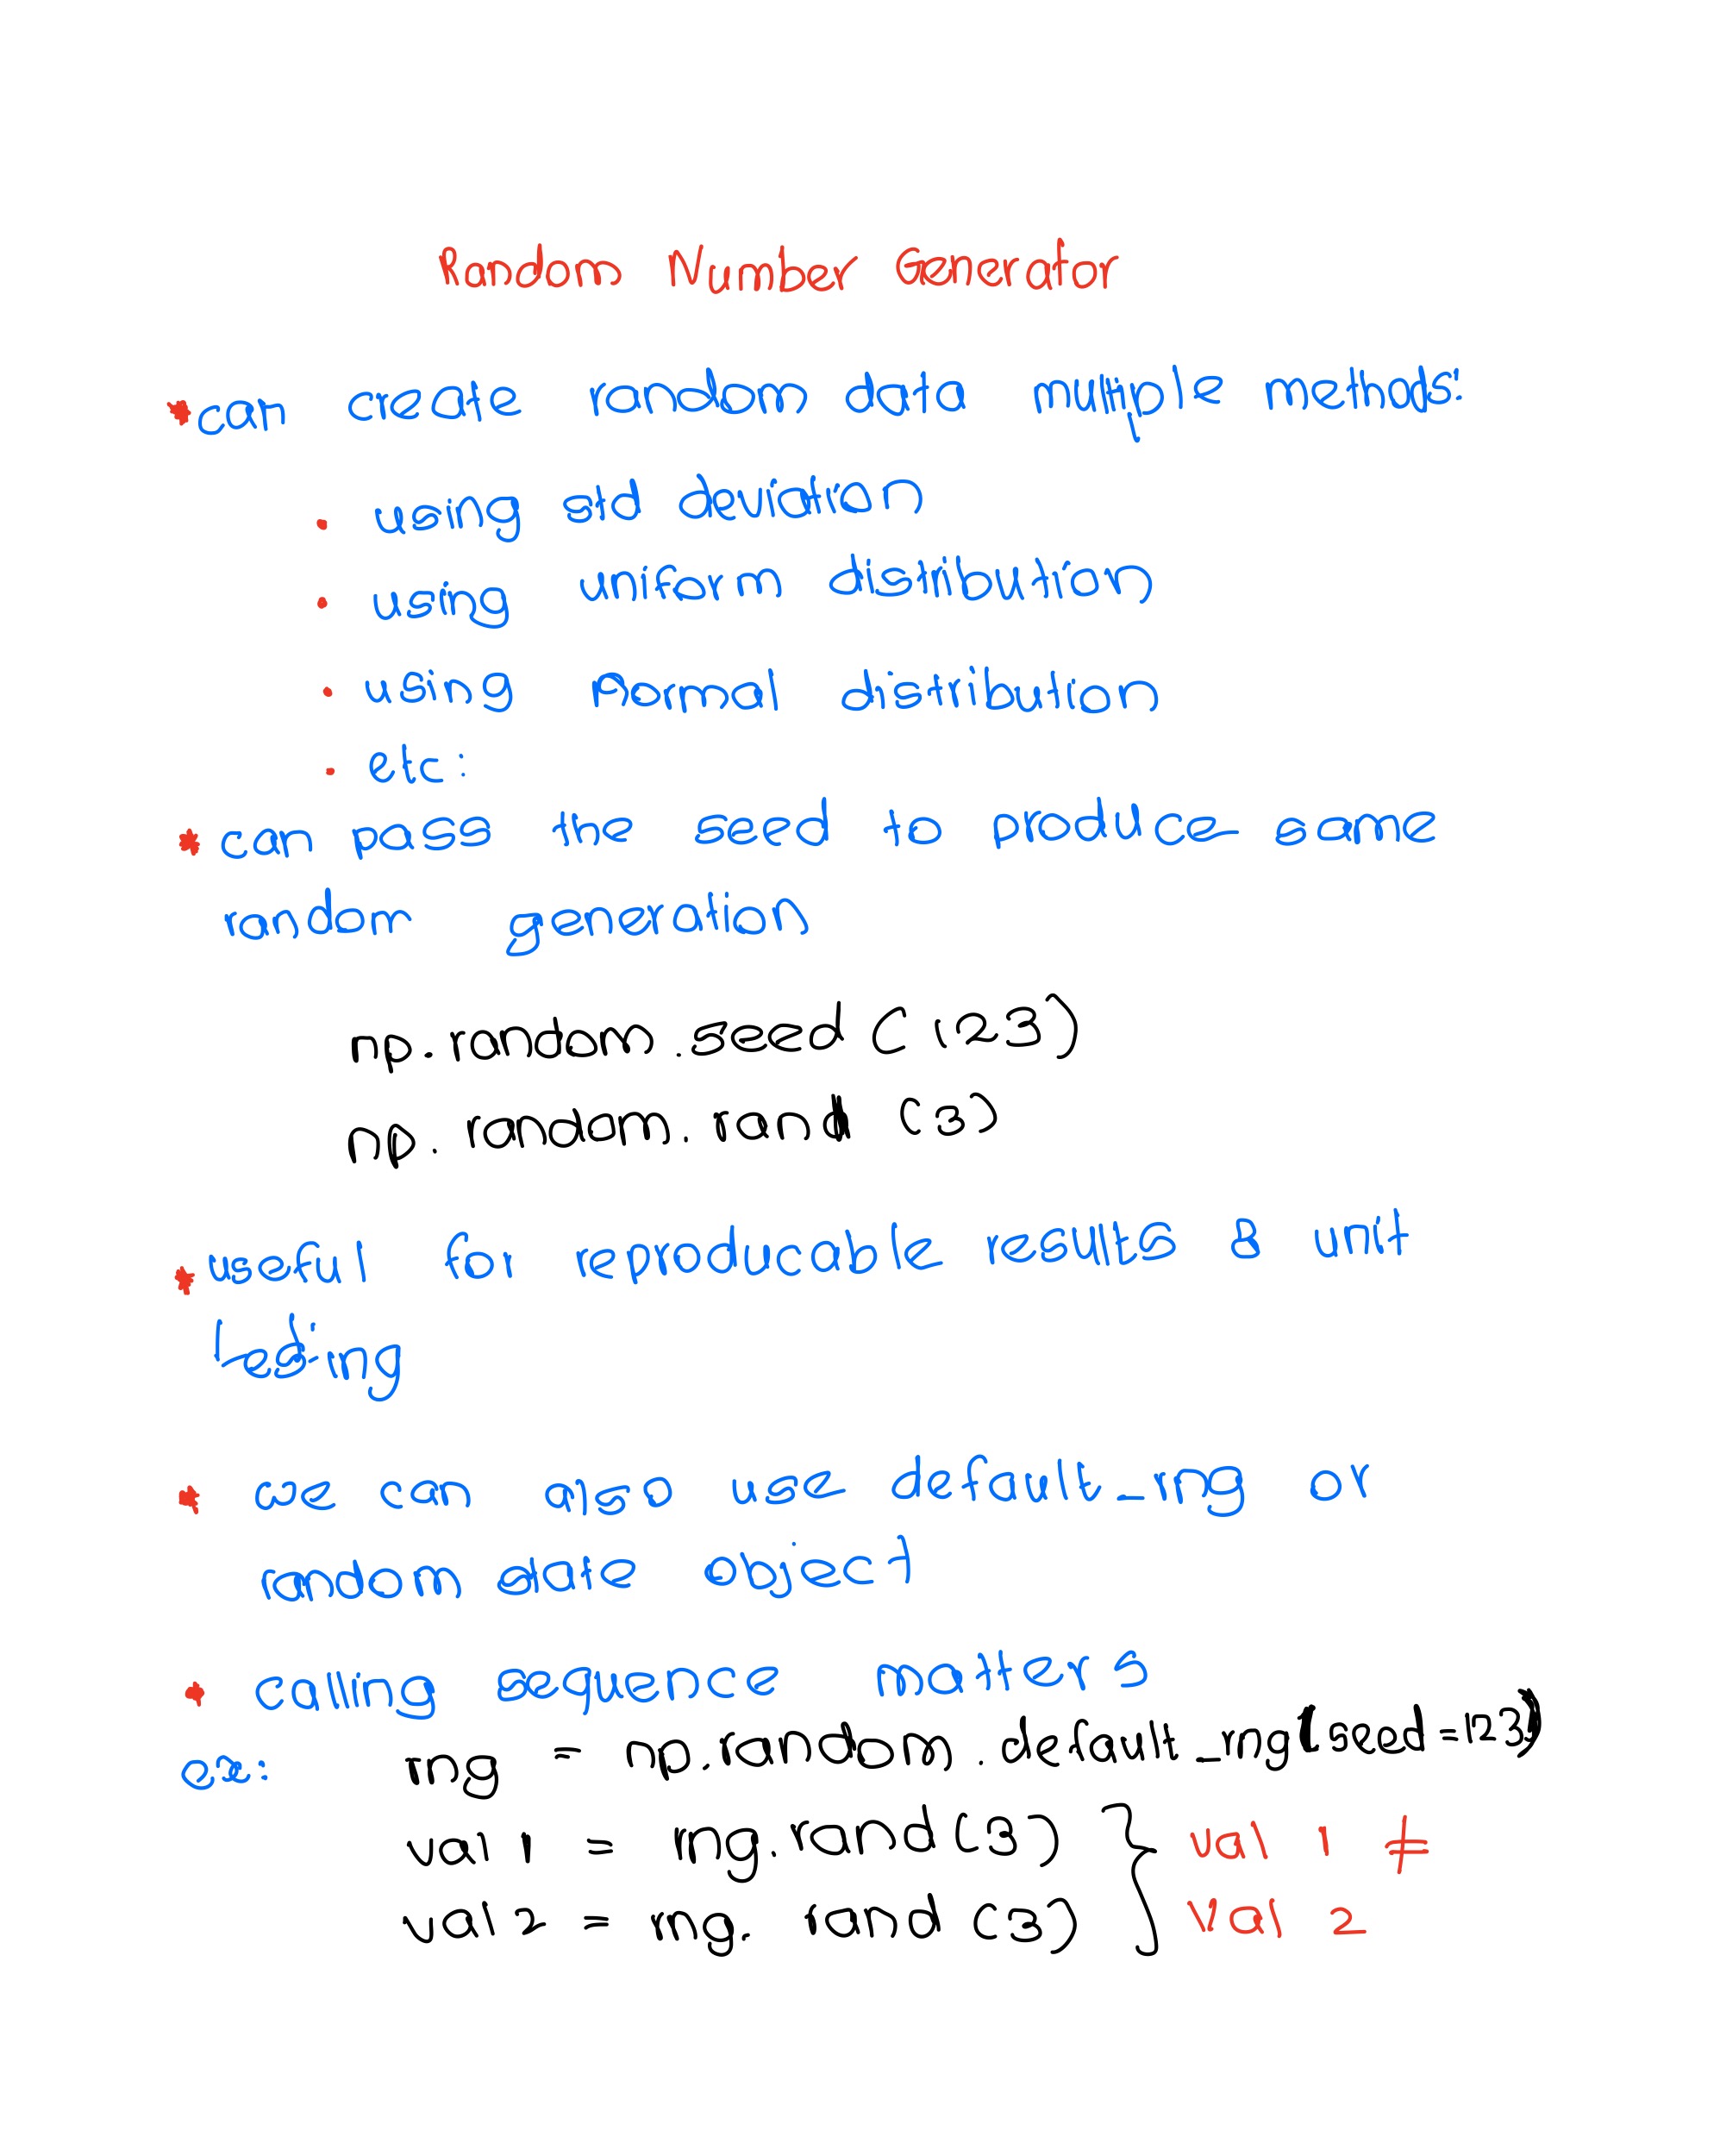 Random Number Generator
*can create random data multiple methods:
· using std deviation
· using uniform distribution
· using normal distribution
· etc:
* can pass the seed to produce same
random generation
np.random.seed (123)
np.random.rand (3)
*useful for reproducable results & unit
testing
* we can also use default_rng or
random state object
* calling sequence matters
ex: rng = np.random.default_rng(seed=123)
val 1 = rng.rand(3) } val 1 ≠
val 2 = rng.rand (3) val 2